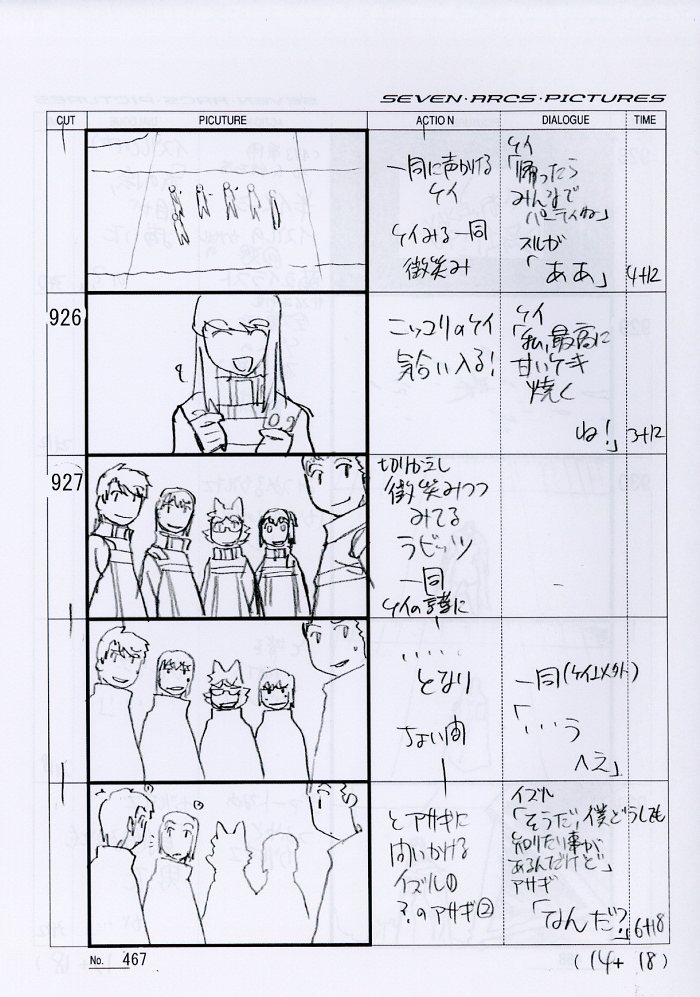 SEVEN・ARCS・PICTURES
CUT
PICUTURE
ACTION
DIALOGUE
TIME
一同に声かける
ケイ
ケイみる一同
微笑み
ケイ
「帰ったら
みんなで
パーティね」
スルガ
「ああ」
4+12
926
ニッコリのケイ
気合い入る!
ケイ
「私、最高に
甘いケーキ
焼く
ね!」
3+12
927
切りかえし
微笑みつつ
みてる
ラビッツ
一同
ケイの言葉に
・・・・・
となり
ちょい間
一同(ケイ以外)
「・・・う
へえ」
とアサギに
問いかける
イズル①
?のアサギ②
イズル
「そうだ、僕どうしても
知りたい事が
あるんだけど」
アサギ
「なんだ?」
6+18
No. 467
(14+ 18)